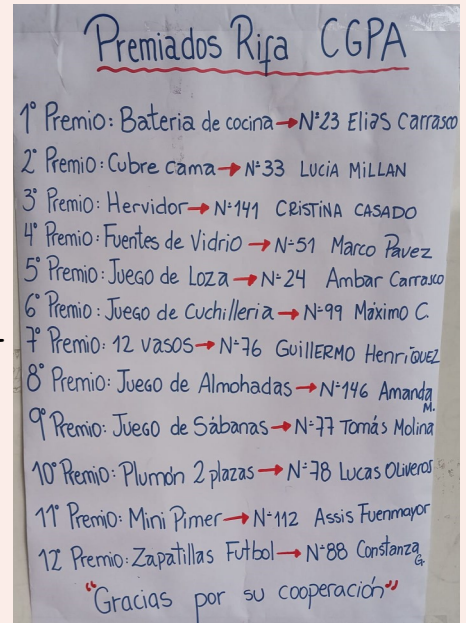 Premiados Rifa CGPA
1° Premio: Bateria de cocina → N°23 Elias Carrasco
2° Premio: Cubre cama → N°33 Lucia Millan
3° Premio: Hervidor → N°141 Cristina Casado
4° Premio: Fuentes de Vidrio → N°51 Marco Pavez
5° Premio: Juego de Loza → N°24 Ambar Carrasco
6° Premio: Juego de Cuchilleria → N°99 Máximo C.
7° Premio: 12 vasos → N°76 Guillermo Henriquez
8° Premio: Juego de Almohadas → N°146 Amanda M.
9° Premio: Juego de Sábanas → N°77 Tomás Molina
10° Premio: Plumón 2 plazas → N°78 Lucas Oliveros
11° Premio: Mini Pimer → N°112 Assis Fuenmayor
12° Premio: Zapatillas Futbol → N°88 Constanza G.
"Gracias por su cooperación"